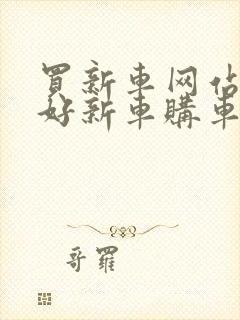 買新車网佔
好新車購車
哥羅